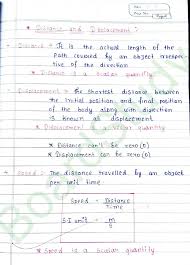 * Distance and Displacement :
- Distance → It is the actual length of the
path covered by an object irrespec-
tive of the direction
* Distance is a scalar quantity
- Displacement → The shortest distance between
the initial position and final position
of the body along with direction
is known as displacement
* Displacement vector quantity
* Distance can't be zero (0)
* Displacement can be zero (0)
- Speed → The distance travelled by an object
per unit time
Speed = Distance
Time
S.I unit = m
s
* Speed is a scalar quantity